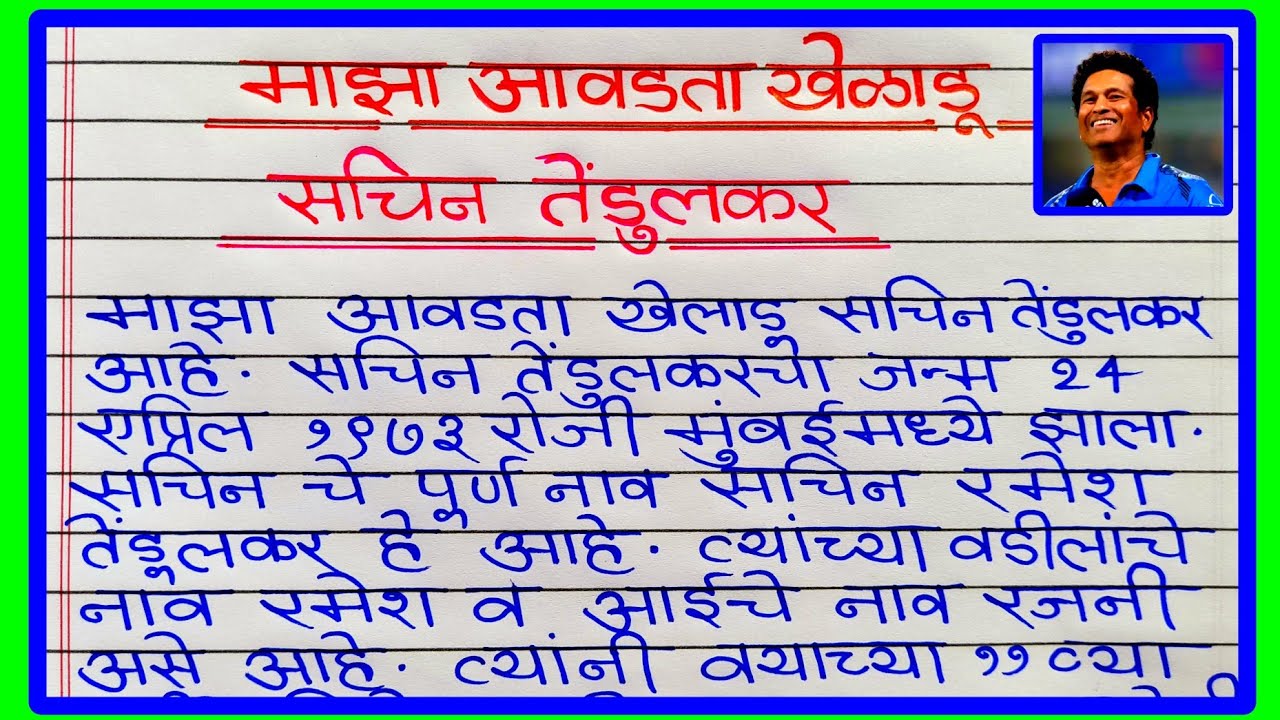 माझा आवडता खेळाडू
सचिन तेंडुलकर
माझा आवडता खेलाडू सचिन तेंडुलकर
आहे. सचिन तेंडुलकरचा जन्म २४
एप्रिल १९७३ रोजी मुंबईमध्ये झाला.
सचिन चे पूर्ण नाव सचिन रमेश
तेंडूलकर हे आहे. त्यांच्या वडीलांचे
नाव रमेश व आईचे नाव रजनी
असे आहे. त्यांनी वयाच्या ११व्या